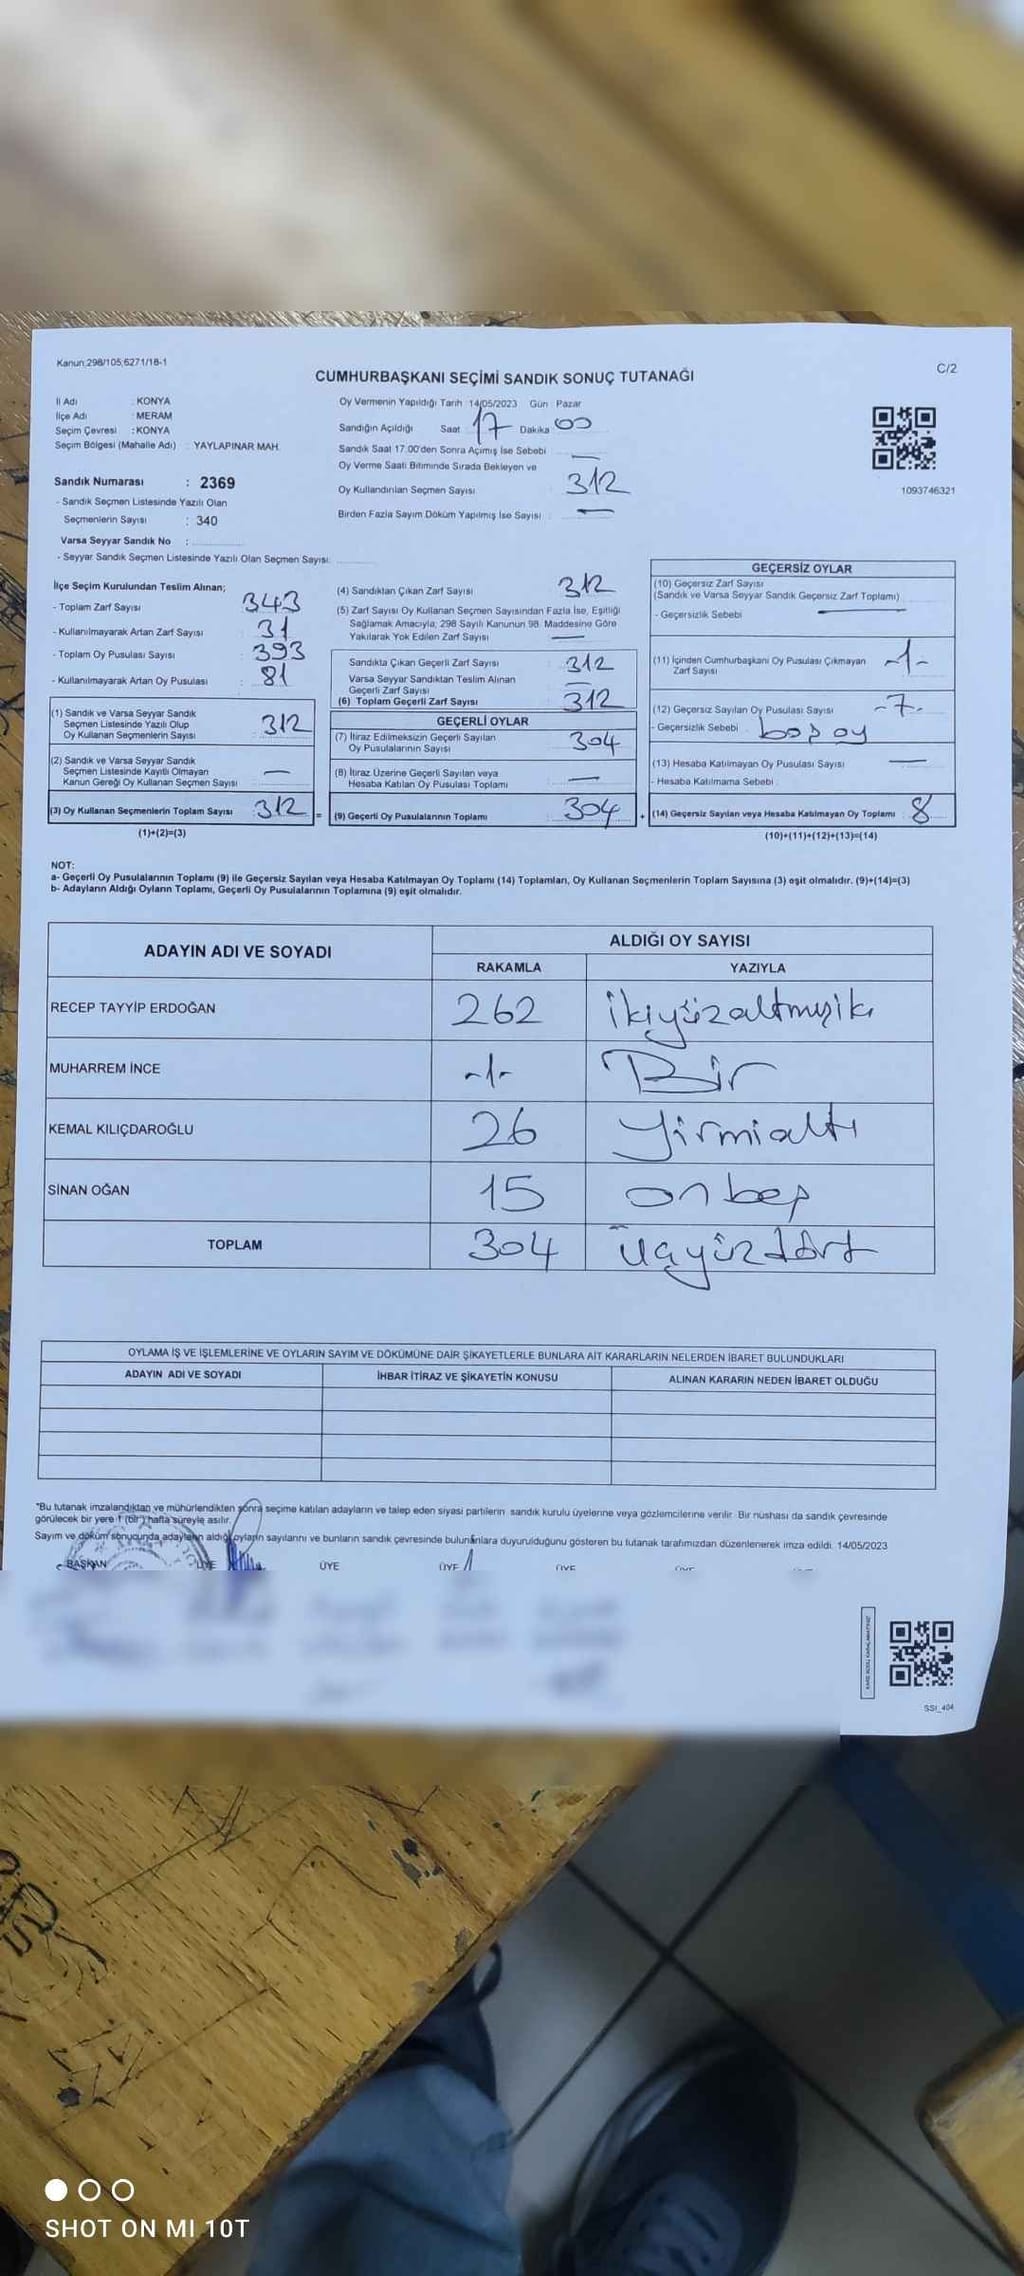 Kanun;298/105;6271/18-1
C/2
CUMHURBAŞKANI SEÇİMİ SANDIK SONUÇ TUTANAĞI
İl Adı : KONYA
İlçe Adı : MERAM
Seçim Çevresi : KONYA
Seçim Bölgesi (Mahalle Adı) : YAYLAPINAR MAH.
Sandık Numarası : 2369
- Sandık Seçmen Listesinde Yazılı Olan
Seçmenlerin Sayısı : 340
Varsa Seyyar Sandık No :
- Seyyar Sandık Seçmen Listesinde Yazılı Olan Seçmen Sayısı:
Oy Vermenin Yapıldığı Tarih :14/05/2023 Gün : Pazar
Sandığın Açıldığı Saat 17 Dakika 00
Sandık Saat 17.00'den Sonra Açımış İse Sebebi —
Oy Verme Saati Bitiminde Sırada Bekleyen ve
Oy Kullandırılan Seçmen Sayısı 312
Birden Fazla Sayım Döküm Yapılmış İse Sayısı : —
1093746321
İlçe Seçim Kurulundan Teslim Alınan;
- Toplam Zarf Sayısı : 343
- Kullanılmayarak Artan Zarf Sayısı : 31
- Toplam Oy Pusulası Sayısı : 393
- Kullanılmayarak Artan Oy Pusulası : 81
(1) Sandık ve Varsa Seyyar Sandık
Seçmen Listesinde Yazılı Olup
Oy Kullanan Seçmenlerin Sayısı 312
(2) Sandık ve Varsa Seyyar Sandık
Seçmen Listesinde Kayıtlı Olmayan
Kanun Gereği Oy Kullanan Seçmen Sayısı —
(3) Oy Kullanan Seçmenlerin Toplam Sayısı : 312 =
(1)+(2)=(3)
(4) Sandıktan Çıkan Zarf Sayısı 312
(5) Zarf Sayısı Oy Kullanan Seçmen Sayısından Fazla İse, Eşitliği
Sağlamak Amacıyla; 298 Sayılı Kanunun 98. Maddesine Göre
Yakılarak Yok Edilen Zarf Sayısı —
Sandıkta Çıkan Geçerli Zarf Sayısı : 312
Varsa Seyyar Sandıktan Teslim Alınan
Geçerli Zarf Sayısı —
(6) Toplam Geçerli Zarf Sayısı : 312
GEÇERLİ OYLAR
(7) İtiraz Edilmeksizin Geçerli Sayılan
Oy Pusulalarının Sayısı 304
(8) İtiraz Üzerine Geçerli Sayılan veya
Hesaba Katılan Oy Pusulası Toplamı —
(9) Geçerli Oy Pusulalarının Toplamı : 304 +
GEÇERSİZ OYLAR
(10) Geçersiz Zarf Sayısı
(Sandık ve Varsa Seyyar Sandık Geçersiz Zarf Toplamı)
- Geçersizlik Sebebi —
(11) İçinden Cumhurbaşkanı Oy Pusulası Çıkmayan
Zarf Sayısı -1-
(12) Geçersiz Sayılan Oy Pusulası Sayısı -7-
- Geçersizlik Sebebi : boş oy
(13) Hesaba Katılmayan Oy Pusulası Sayısı : —
- Hesaba Katılmama Sebebi :
(14) Geçersiz Sayılan veya Hesaba Katılmayan Oy Toplamı : 8
(10)+(11)+(12)+(13)=(14)
NOT:
a- Geçerli Oy Pusulalarının Toplamı (9) ile Geçersiz Sayılan veya Hesaba Katılmayan Oy Toplamı (14) Toplamları, Oy Kullanan Seçmenlerin Toplam Sayısına (3) eşit olmalıdır. (9)+(14)=(3)
b- Adayların Aldığı Oyların Toplamı, Geçerli Oy Pusulalarının Toplamına (9) eşit olmalıdır.
ADAYIN ADI VE SOYADI ALDIĞI OY SAYISI
RAKAMLA YAZIYLA
RECEP TAYYİP ERDOĞAN 262 ikiyüzaltmışiki
MUHARREM İNCE -1- Bir
KEMAL KILIÇDAROĞLU 26 yirmialtı
SİNAN OĞAN 15 onbeş
TOPLAM 304 üçyüzdört
OYLAMA İŞ VE İŞLEMLERİNE VE OYLARIN SAYIM VE DÖKÜMÜNE DAİR ŞİKAYETLERLE BUNLARA AİT KARARLARIN NELERDEN İBARET BULUNDUKLARI
ADAYIN ADI VE SOYADI İHBAR İTİRAZ VE ŞİKAYETİN KONUSU ALINAN KARARIN NEDEN İBARET OLDUĞU
"Bu tutanak imzalandıktan ve mühürlendikten sonra seçime katılan adayların ve talep eden siyasi partilerin sandık kurulu üyelerine veya gözlemcilerine verilir. Bir nüshası da sandık çevresinde
görülecek bir yere 1 (bir) hafta süreyle asılır.
Sayım ve döküm sonucunda adayların aldığı oyların sayılarını ve bunların sandık çevresinde bulunanlara duyurulduğunu gösteren bu tutanak tarafımızdan düzenlenerek imza edildi. 14/05/2023
BAŞKAN ÜYE ÜYE ÜYE ÜYE
SSI_404
SHOT ON MI 10T